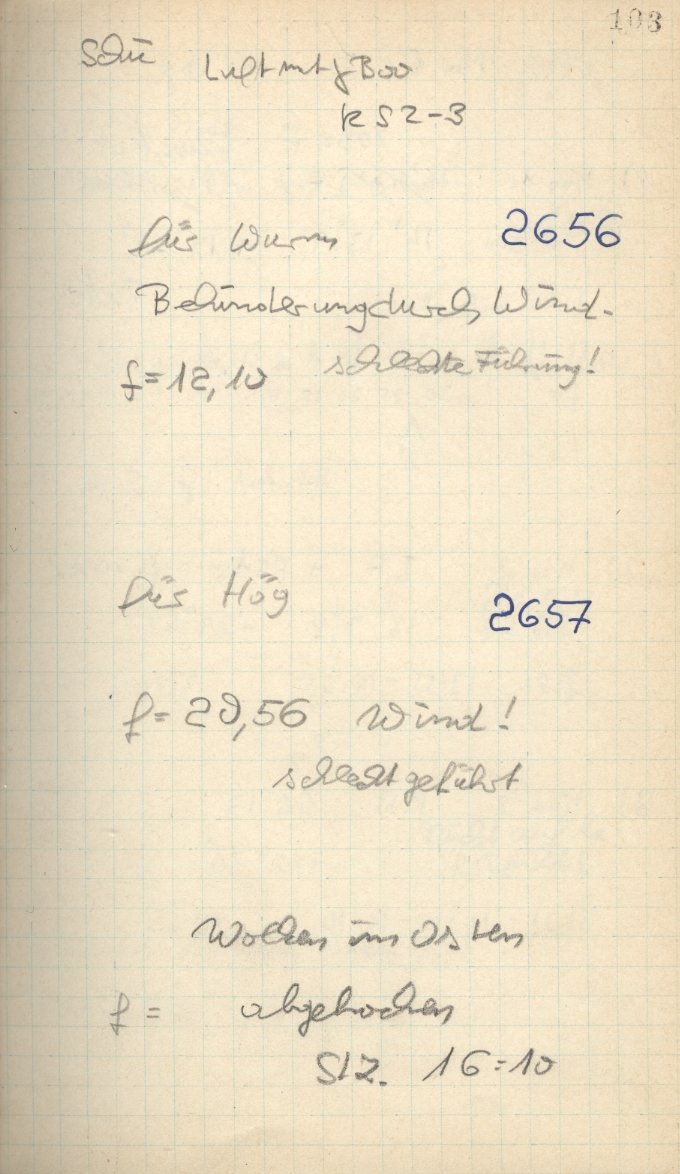 103
Schü Luft mt f Boo
RS 2-3
Für Wurm 2656
Behinderung durch Wind.
f=12,10 schlechte Führung!
Für Hög 2657
f=20,56 Wind!
schlecht geführt
Wolken im Osten
f= abgebrochen
Stz. 16=10